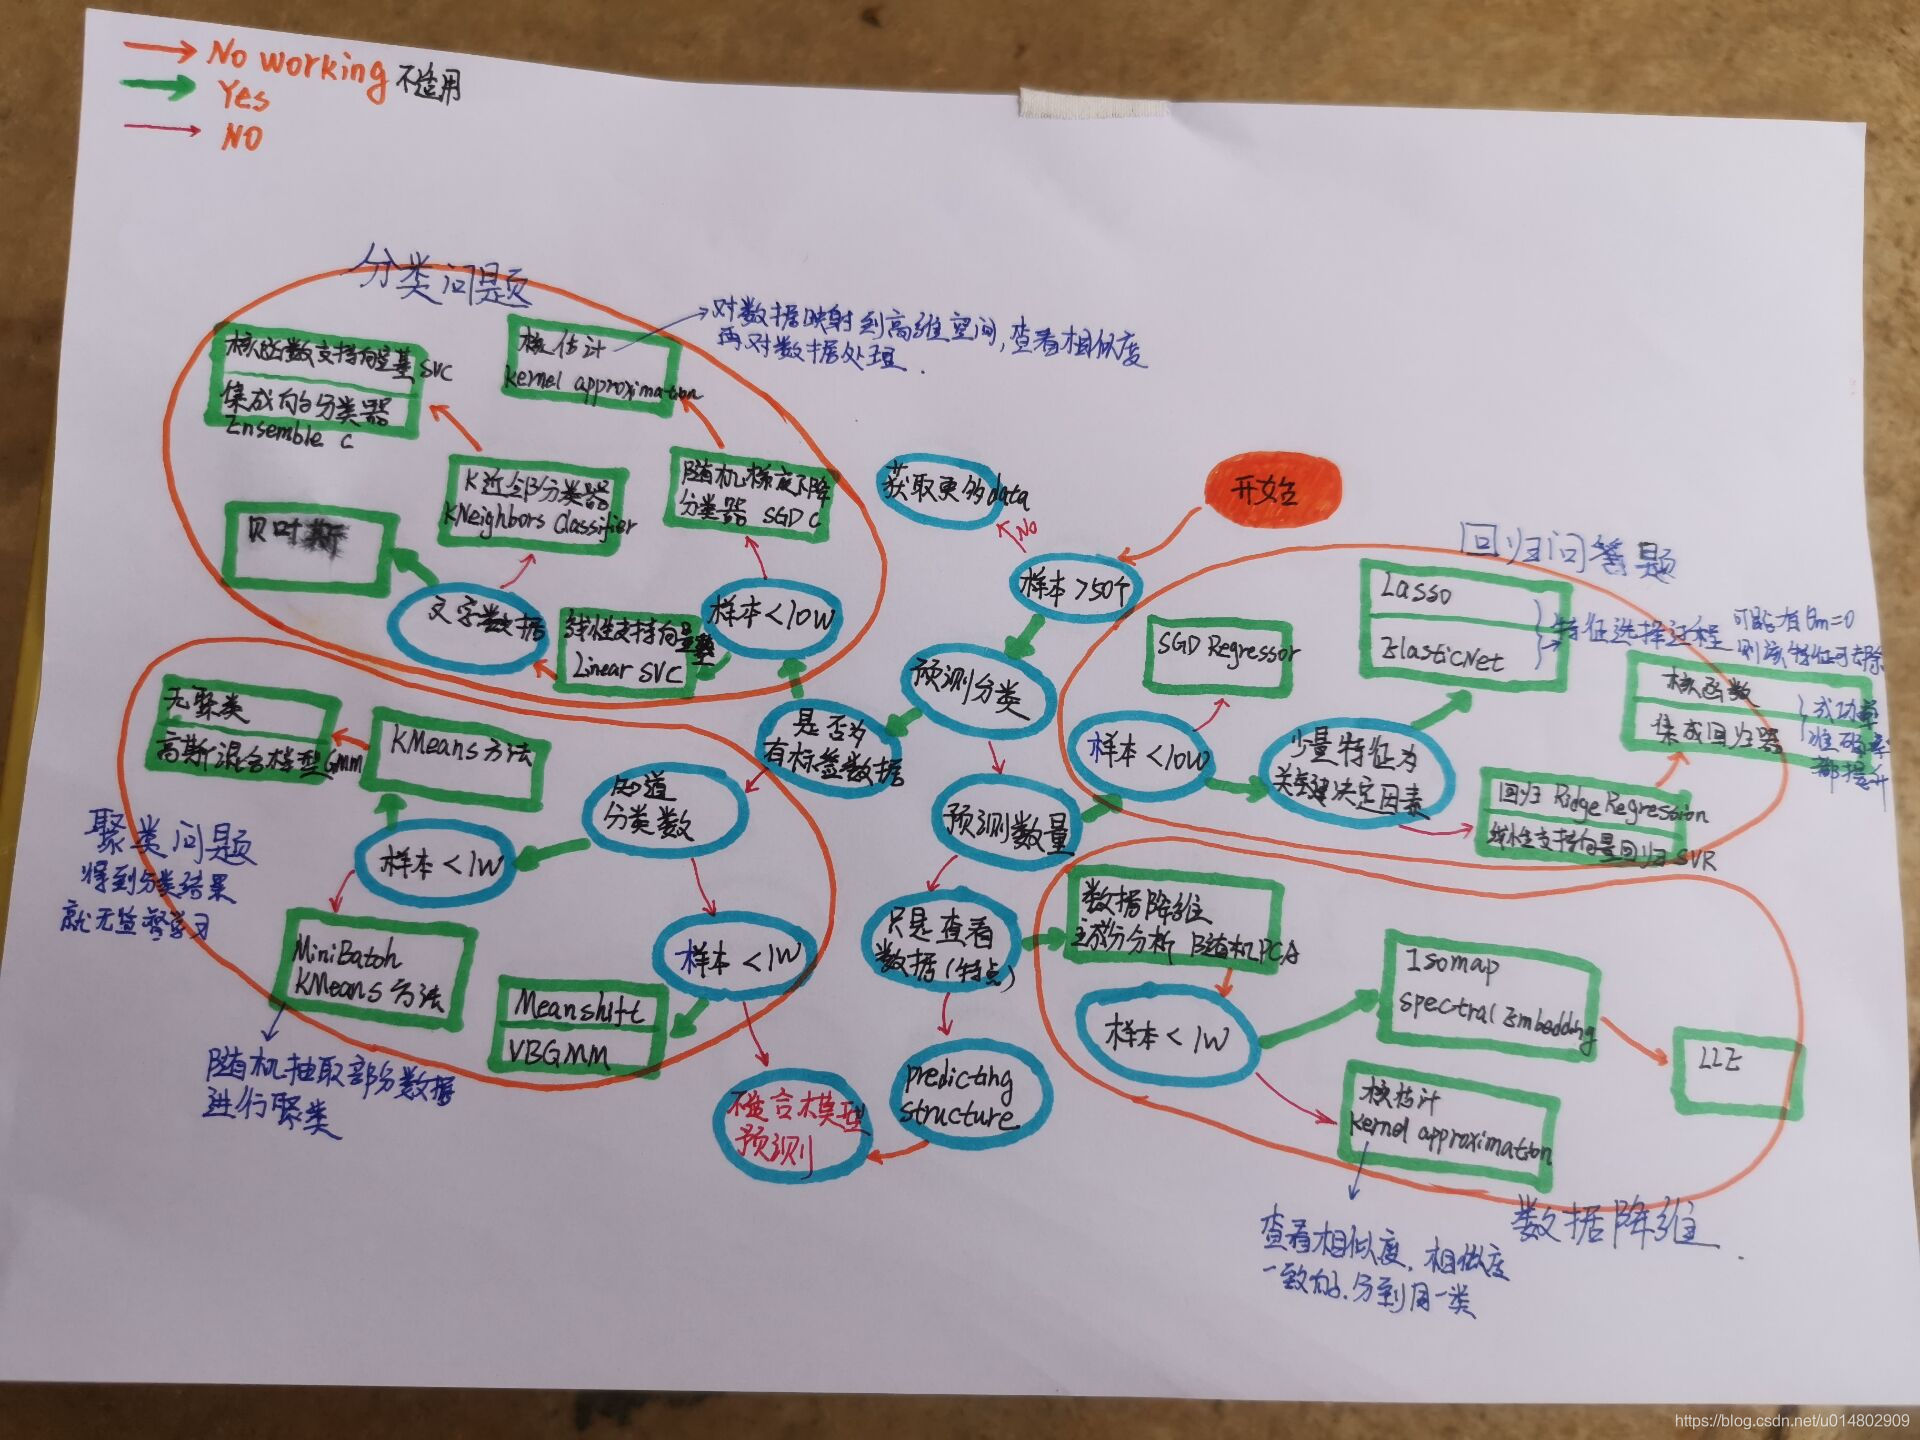 No working 不适用
Yes
NO
分类问题
核函数支持向量基SVC
集成的分类器
Ensemble C
核估计
kernel approximation
对数据映射到高维空间,查看相似度
再对数据处理.
K近邻分类器
KNeighbors Classifier
随机梯度下降
分类器 SGD C
贝叶斯
文字数据
线性支持向量
Linear SVC
样本<10W
获取更多data
No
开始
样本>50个
预测分类
是否为
有标签数据
预测数量
只是查看
数据(特点)
predicting
structure
不适合模型
预测
回归问题
SGD Regressor
Lasso
ElasticNet
特征选择过程
可能有θm=0
则该特征可去除
核函数
集成回归器
成功率
准确率
都提升
样本<10W
少量特征为
关键决定因素
回归 Ridge Regression
线性支持向量回归SVR
无聚类
高斯混合模型GMM
KMeans方法
知道
分类数
聚类问题
得到分类结果
就无监督学习
样本<1W
MiniBatch
KMeans方法
随机抽取部分数据
进行聚类
样本<1W
Meanshift
VBGMM
数据降维
主成分分析 随机PCA
样本<1W
Isomap
spectral Embedding
LLE
核估计
kernel approximation
查看相似度,相似度
一致的,分到同一类
数据降维.
https://blog.csdn.net/u014802909